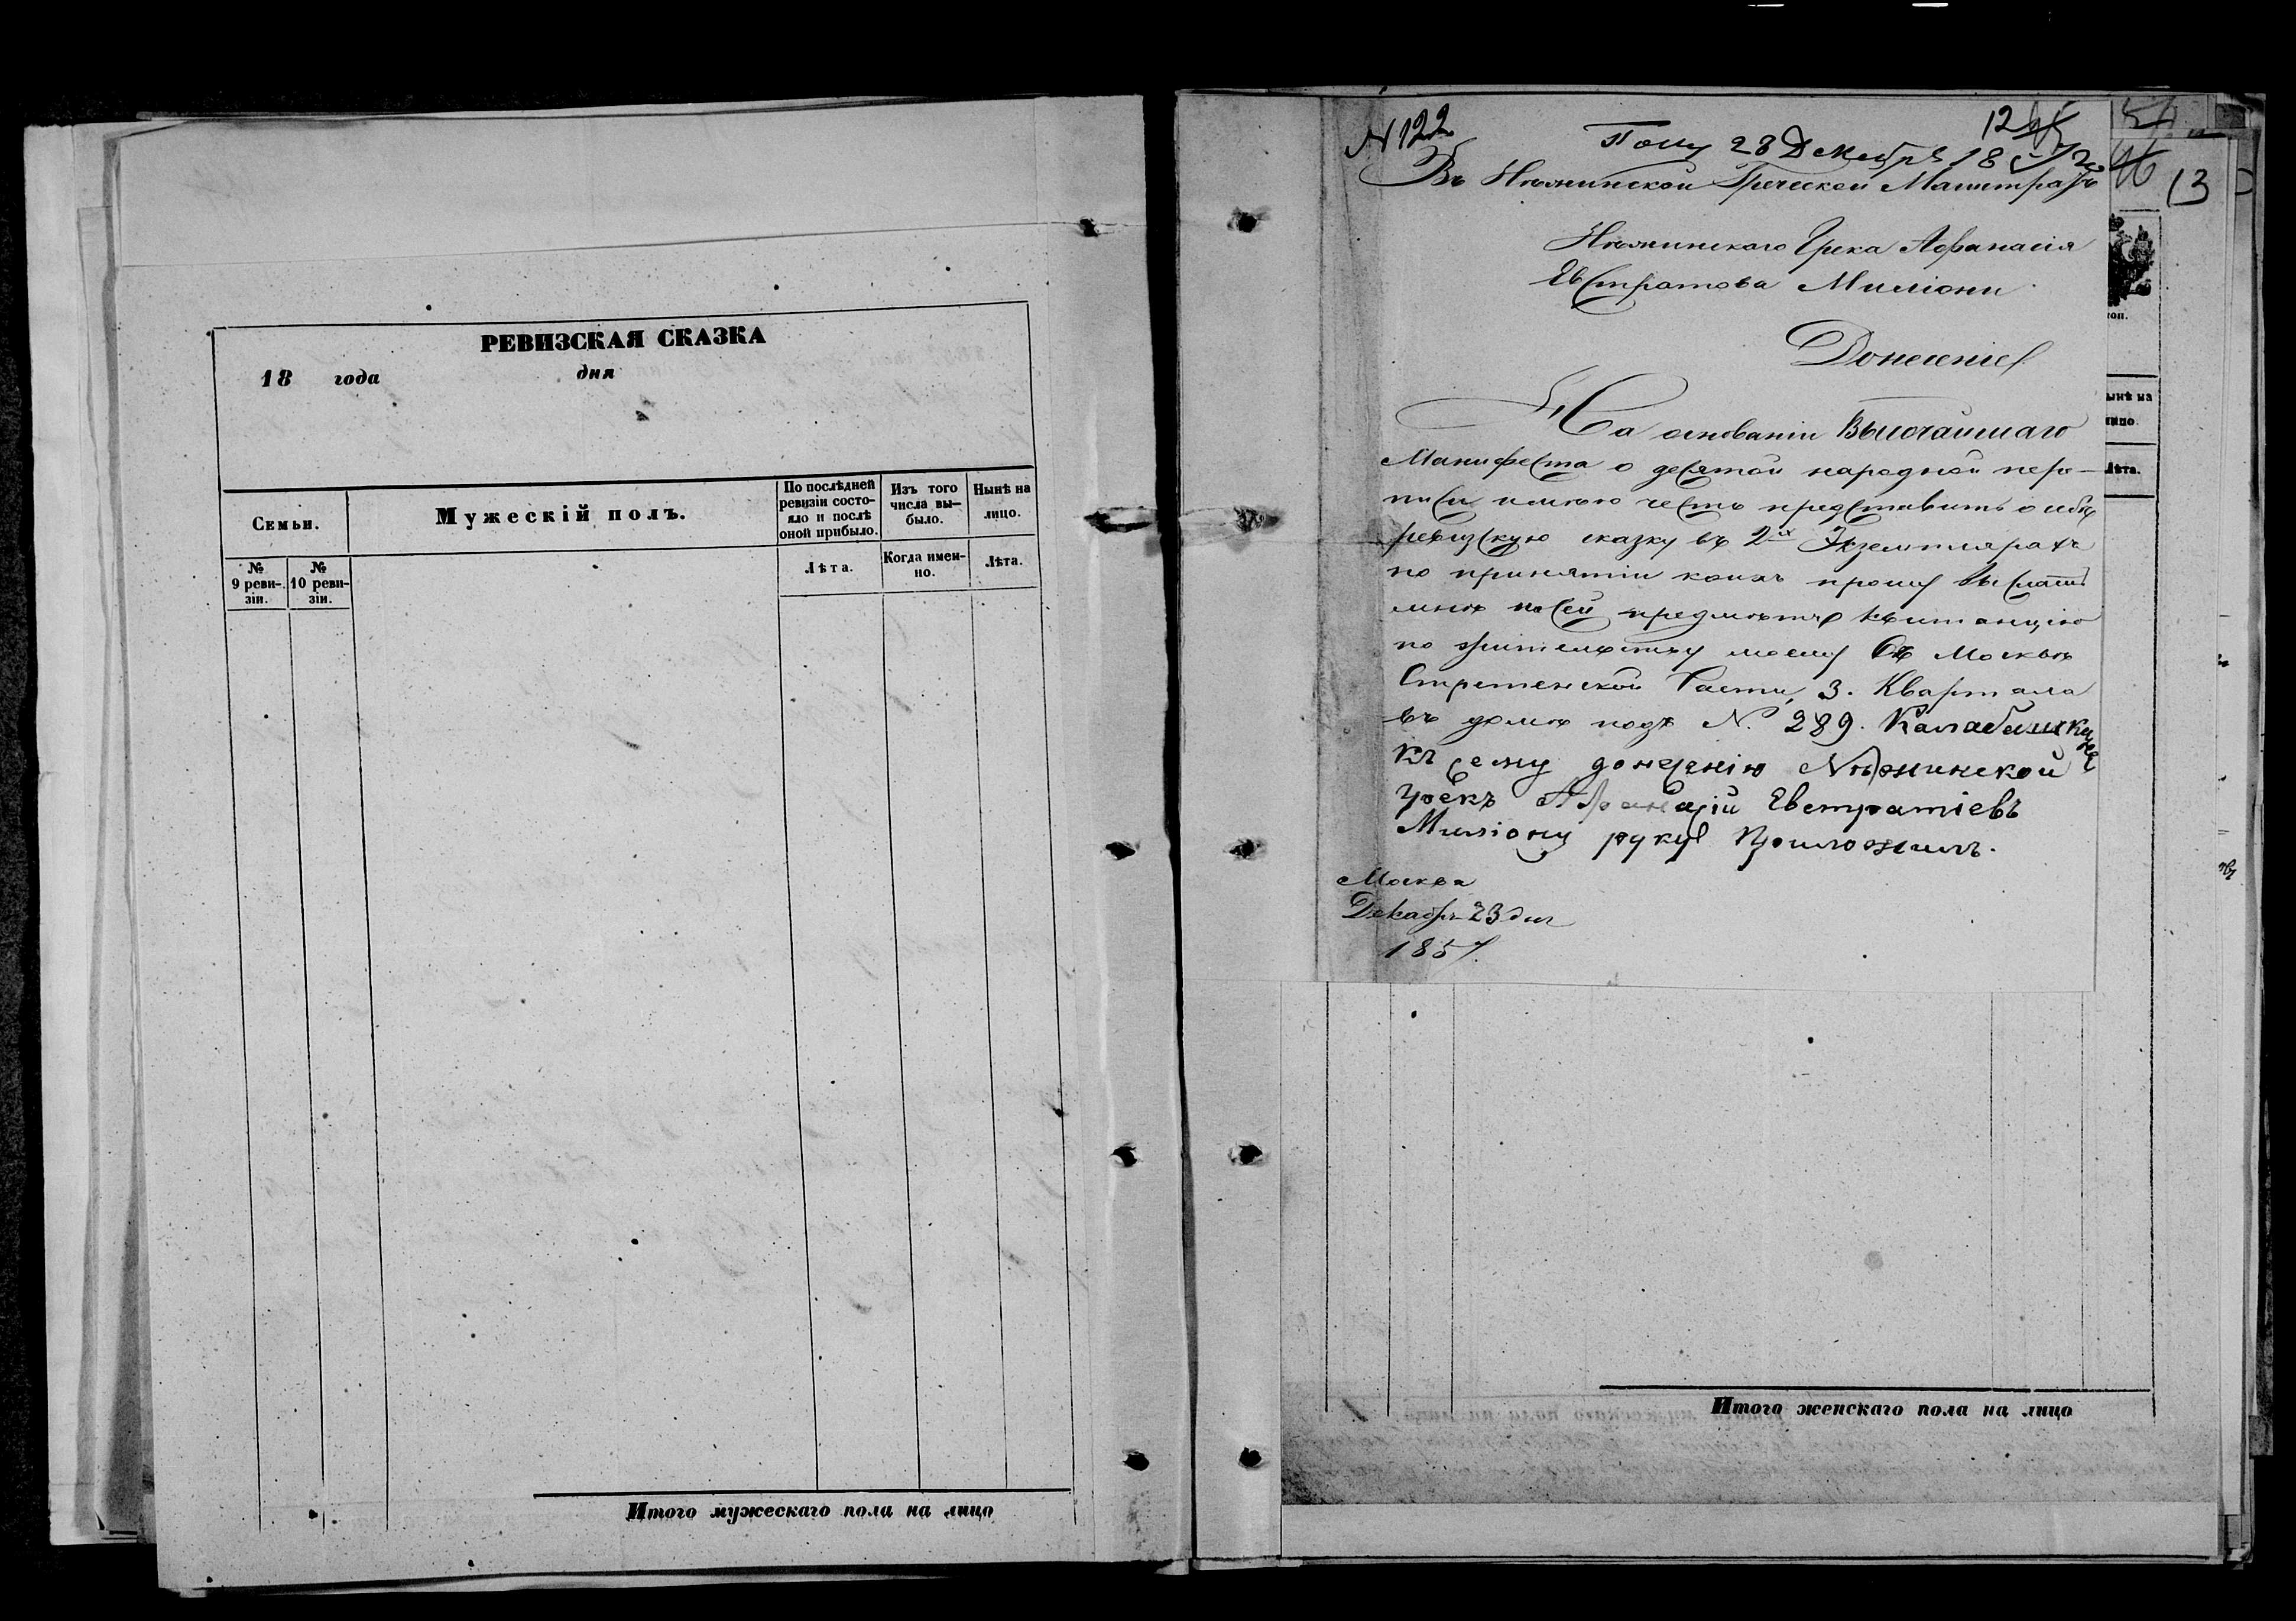 РЕВИЗСКАЯ СКАЗКА
18 года дня
Семьи.
Мужескій полъ.
По послѣдней ревизіи состояло и послѣ оной прибыло.
Изъ того числа выбыло.
Нынѣ на лицо.
№ 9 ревизіи.
№ 10 ревизіи.
Лѣта.
Когда именно.
Лѣта.
Итого мужескаго пола на лицо
N 122
12
Полу 28 Декабря 1857 го
13
Въ Нѣжинской Греческой Магистратъ
Нѣжинскаго Грека Афанасія
Евстратова Миліони
Донесеніе
На основаніи Высочайшаго
Манифеста о десятой народной пере-
писи имѣю честь представить о себѣ
ревизскую сказку въ 2хъ Экземплярахъ
по принятіи коихъ прошу выслать
мнѣ по сей предмѣтѣ квитанцію
по жительству моему въ Москвѣ
Стретенской Части, 3. Квартала
въ домѣ подъ N. 289.
Къ сему донесенію Нѣжинской
Грекъ Афанасій Евстратіевъ
Миліони руку Приложилъ.
Москва
Декабрь 23 дня
1857.
ынѣ на
лицо.
Лѣта.
Итого женскаго пола на лицо